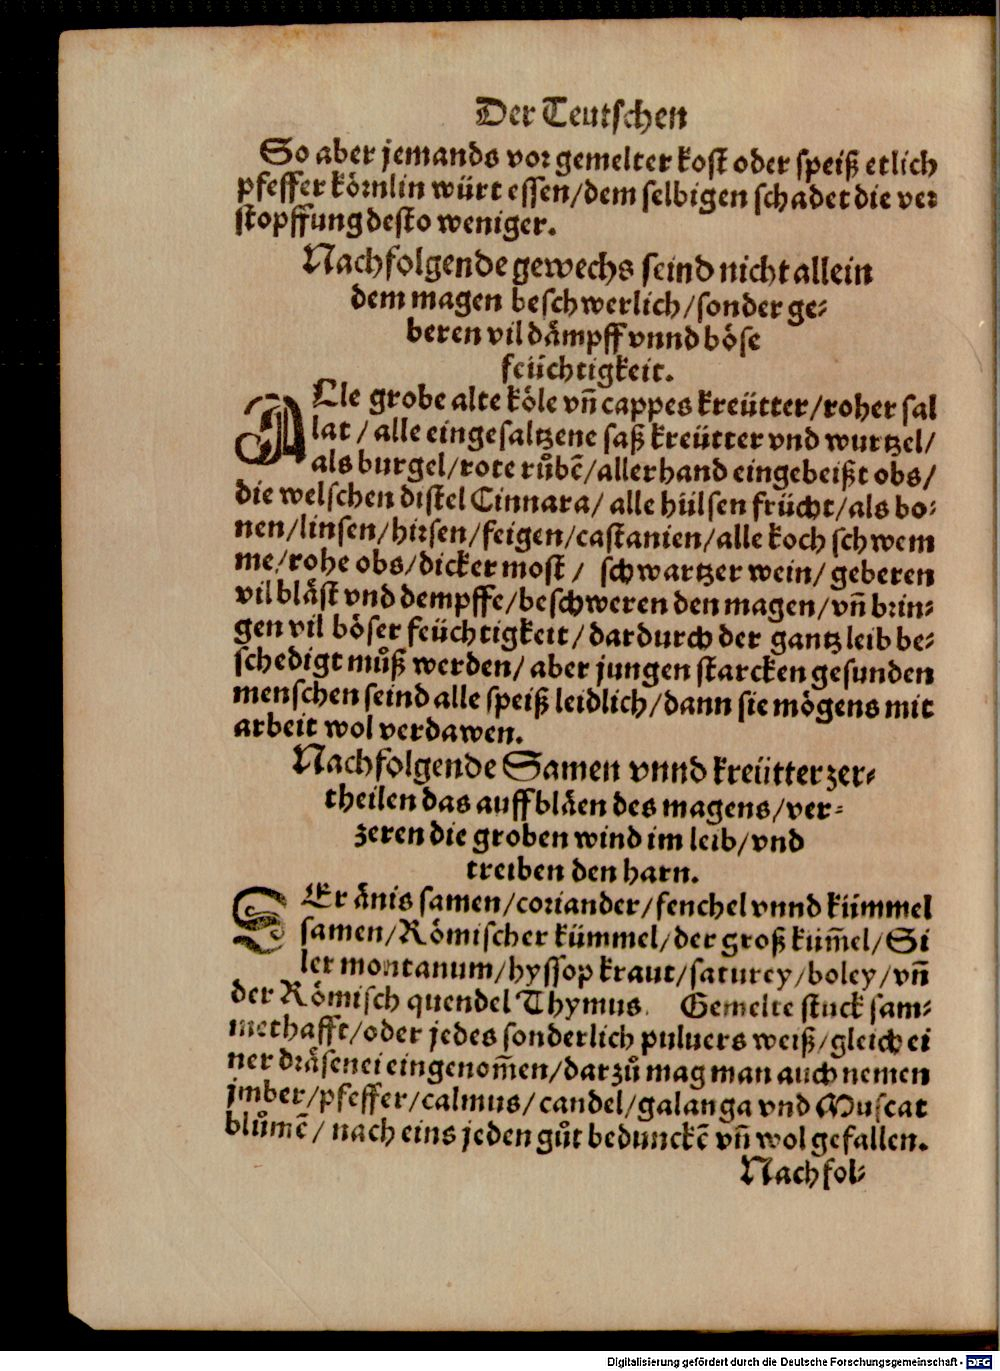 Der Teutschen
So aber jemands vor gemelter kost oder speiß etlich
pfeffer körnlin würt essen/dem selbigen schadet die ver
stopffung desto weniger.
Nachfolgende gewechs seind nicht allein
dem magen beschwerlich/sonder ge⸗
beren vil dämpff vnnd böse
feüchtigkeit.
ALle grobe alte köle vñ cappes kreütter/roher sal
lat / alle eingesaltzene saß kreütter vnd wurtzel/
als burgel/rote růbẽ/allerhand eingebeißt obs/
die welschen distel Cinnara/ alle hülsen frücht/als bo⸗
nen/linsen/hirsen/feigen/castanien/alle koch schwem
me/rohe obs/dicker most / schwartzer wein/ geberen
vil bläst vnd dempffe/beschweren den magen/vñ brin⸗
gen vil böser feüchtigkeit/dardurch der gantz leib be⸗
schedigt můß werden/ aber jungen starcken gesunden
menschen seind alle speiß leidlich/dann sie mögens mit
arbeit wol verdawen.
Nachfolgende Samen vnnd kreütter zer⸗
theilen das auffbläen des magens/ver⸗
zeren die groben wind im leib/vnd
treiben den harn.
DEr änis samen/coriander/fenchel vnnd kümmel
samen/Römischer kümmel/der groß küm̃el/Si
ler montanum/hyssop kraut/saturey/boley/vñ
der Römisch quendel Thymus. Gemelte stuck sam⸗
methafft/oder jedes sonderlich puluers weiß/gleich ei
ner dräsenei eingenom̃en/darzů mag man auch nemen
jmber/pfeffer/calmus/candel/galanga vnd Muscat
blůmẽ/ nach eins jeden gůt beduncke͂ vñ wol gefallen.
Nachfol⸗
Digitalisierung gefördert durch die Deutsche Forschungsgemeinschaft - DFG